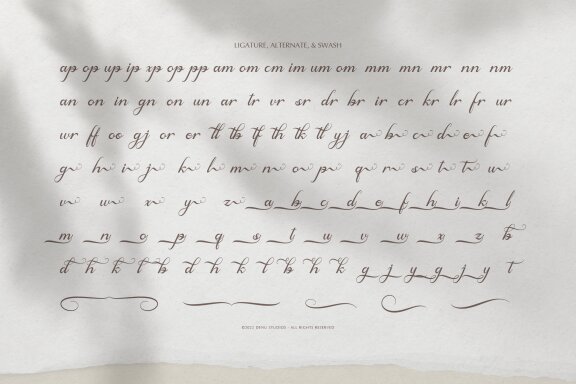 LIGATURE, ALTERNATE, & SWASH
ap op up ip xp op pp am om cm im um om mm mn mr nn nm
an on in gn on un ar tr vr sr dr br ir cr kr lr fr ur
wr ff oo gj or er tl tb tf th tk tl yj a b c d e f
g h i j k l m n o p q r s t t u
v w x y z a b c d e f h i k l
m n o p q s t u v w x z b
d h k t b d h k t b h k g j y g j y t
©2022 DENU STUDIOS - ALL RIGHTS RESERVED